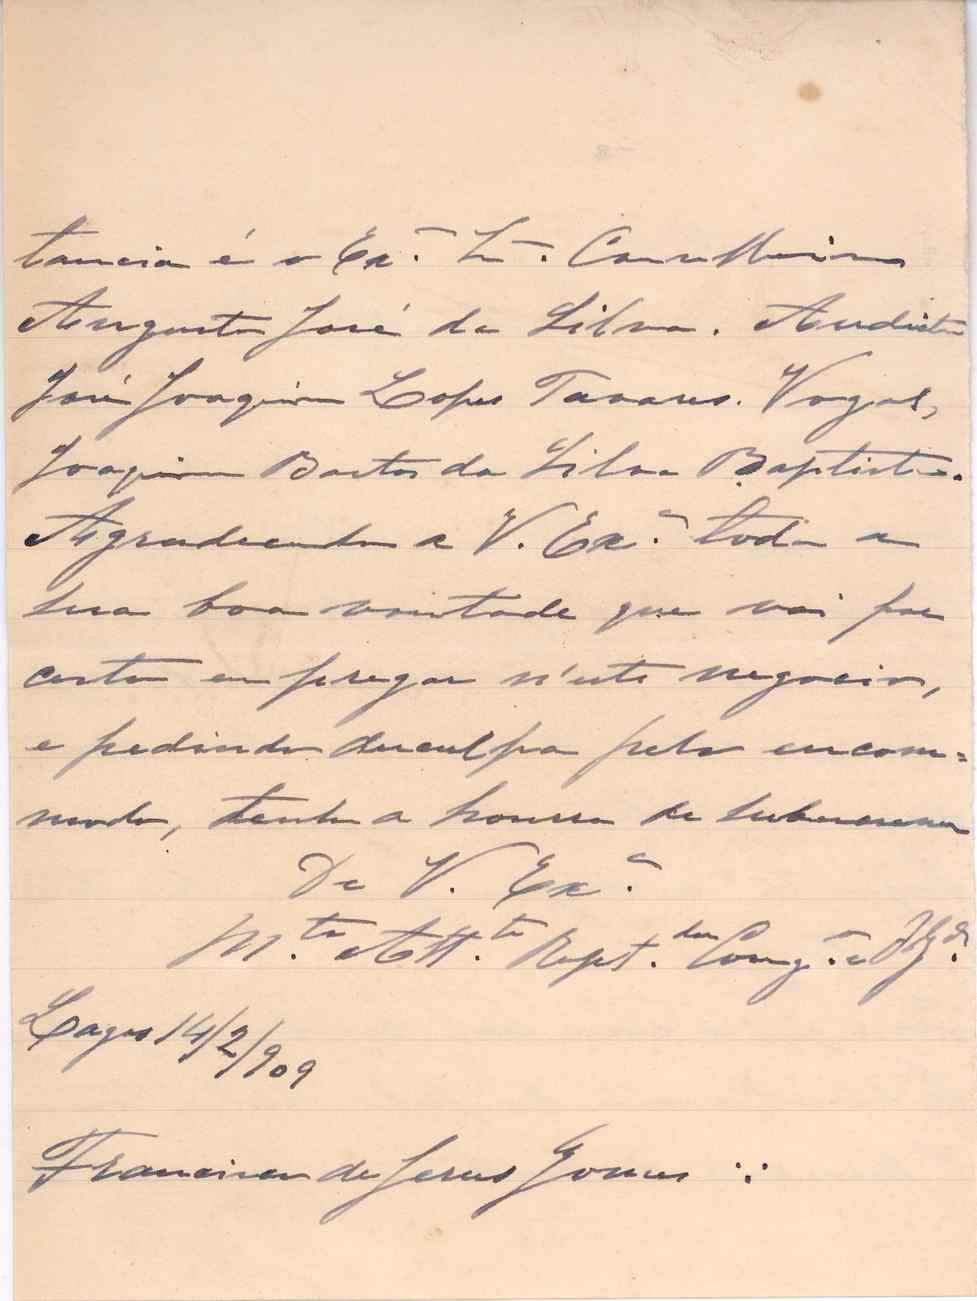 tancia é o Ex.mo Sr. Conselheiro
Augusto José da Silva. Auditor
José Joaquim Lopes Tavares. Vogal,
Joaquim Bastos da Silva Baptista.
Agradecendo a V. Ex.a toda a
sua boa vontade que vai por
certo empregar n'este negocio,
e pedindo desculpa pelo encom=
modo, tenho a honra de subscrever
De V. Ex.a
M.to Att.to
Lagos 14/2/909
Francisco de Jesus Gomes